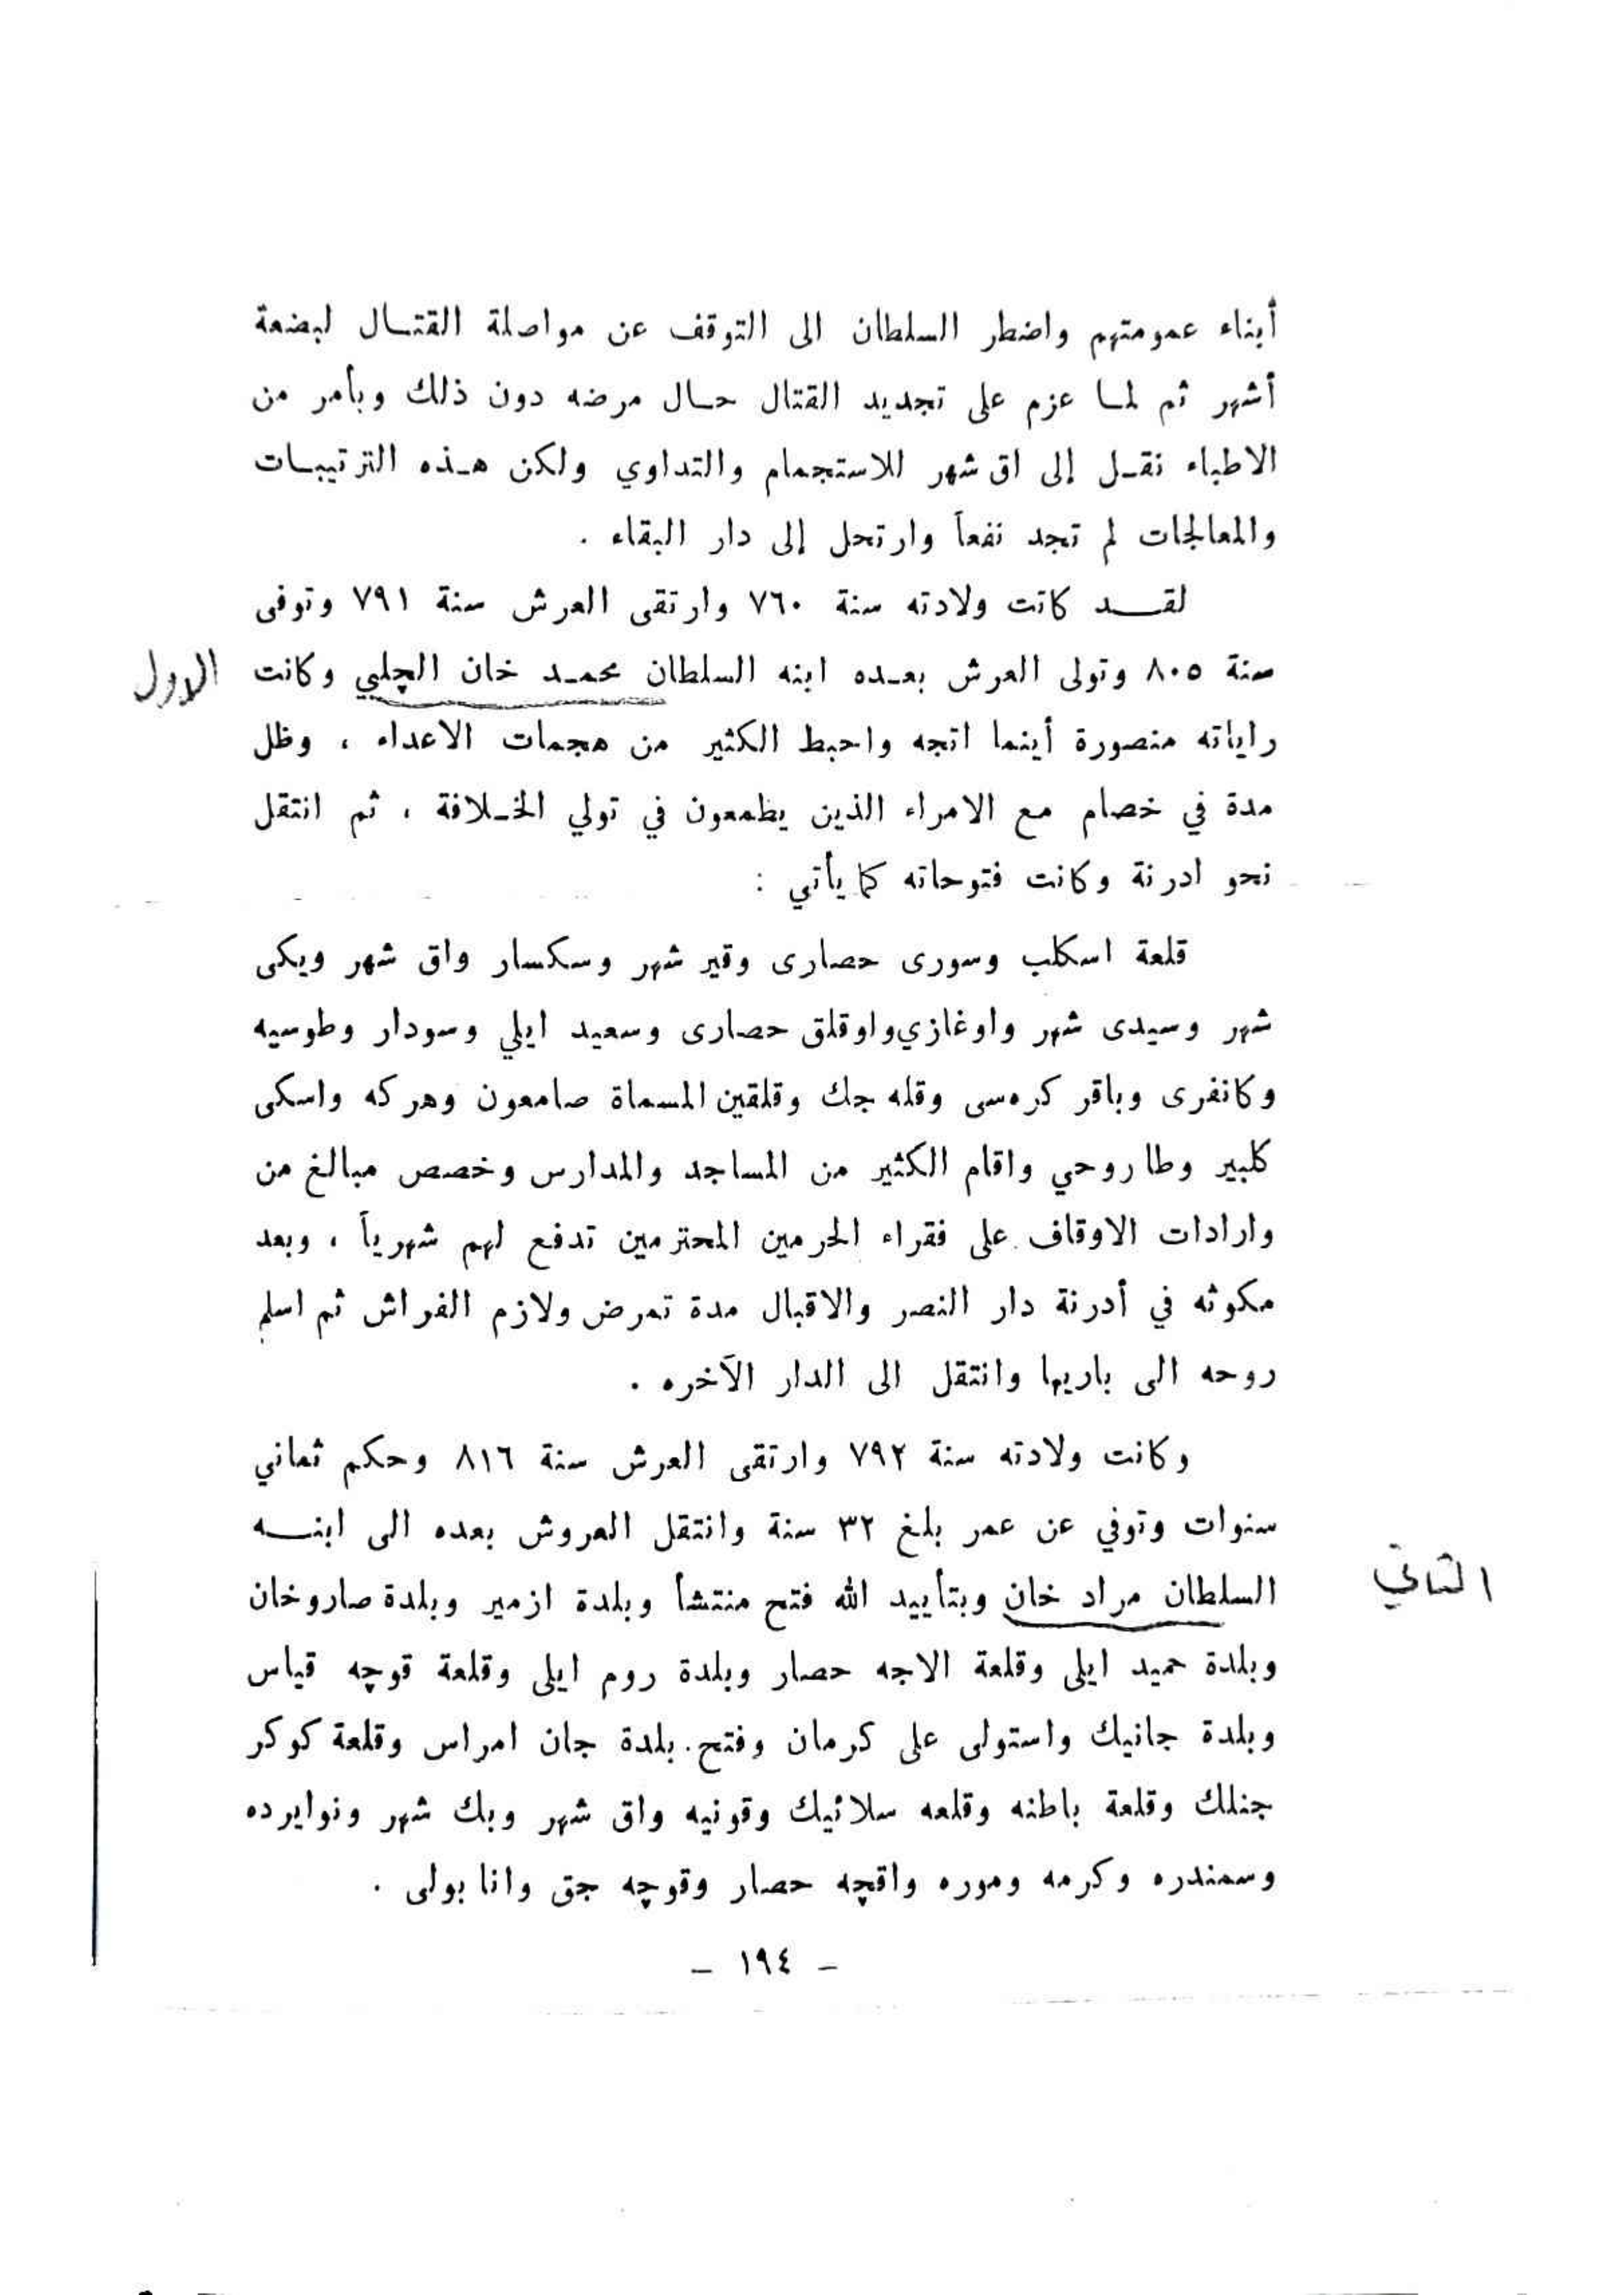 أبناء عمومتهم واضطر السلطان الى التوقف عن مواصلة القتال لبضعة
أشهر ثم لما عزم على تجديد القتال حال مرضه دون ذلك وبأمر من
الاطباء نقل إلى اق شهر للاستجمام والتداوي ولكن هذه الترتيبات
والمعالجات لم تجد نفعاً وارتحل إلى دار البقاء .
لقد كانت ولادته سنة ٧٦٠ وارتقى العرش سنة ٧٩١ وتوفى
سنة ٨٠٥ وتولى العرش بعده ابنه السلطان محمد خان الچلبي وكانت
الاول
راياته منصورة أينما اتجه واحبط الكثير من هجمات الاعداء ، وظل
مدة في خصام مع الامراء الذين يطمعون في تولي الخلافة ، ثم انتقل
نحو ادرنة وكانت فتوحاته كما يأتي :
قلعة اسكلب وسورى حصارى وقير شهر وسكسار واق شهر ويكى
شهر وسيدى شهر واوغازي واوقلق حصارى وسعيد ايلي وسودار وطوسيه
وكانفرى وباقر كرەسى وقله جك وقلقين المسماة صامعون وهركه واسكى
كلبير وطاروحي واقام الكثير من المساجد والمدارس وخصص مبالغ من
وارادات الاوقاف على فقراء الحرمين المحترمين تدفع لهم شهرياً ، وبعد
مكوثه في أدرنة دار النصر والاقبال مدة تمرض ولازم الفراش ثم اسلم
روحه الى باريها وانتقل الى الدار الآخره .
وكانت ولادته سنة ٧٩٢ وارتقى العرش سنة ٨١٦ وحكم ثماني
سنوات وتوفي عن عمر بلغ ٣٢ سنة وانتقل العروش بعده الى ابنه
السلطان مراد خان وبتأييد الله فتح منتشأ وبلدة ازمير وبلدة صاروخان
الثاني
وبلدة حميد ايلى وقلعة الاجه حصار وبلدة روم ايلى وقلعة قوچه قياس
وبلدة جانيك واستولى على كرمان وفتح . بلدة جان امراس وقلعة كوكر
جنلك وقلعة باطنه وقلعه سلائيك وقونيه واق شهر وبك شهر ونوايرده
وسمندره وكرمه وموره واقچه حصار وقوچه جق وانا بولى .
– ١٩٤ –